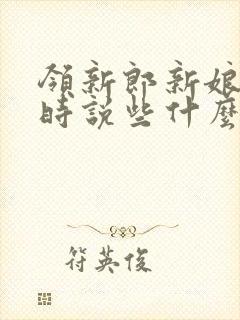 領新郎新娘
時說些什麼
符英俊